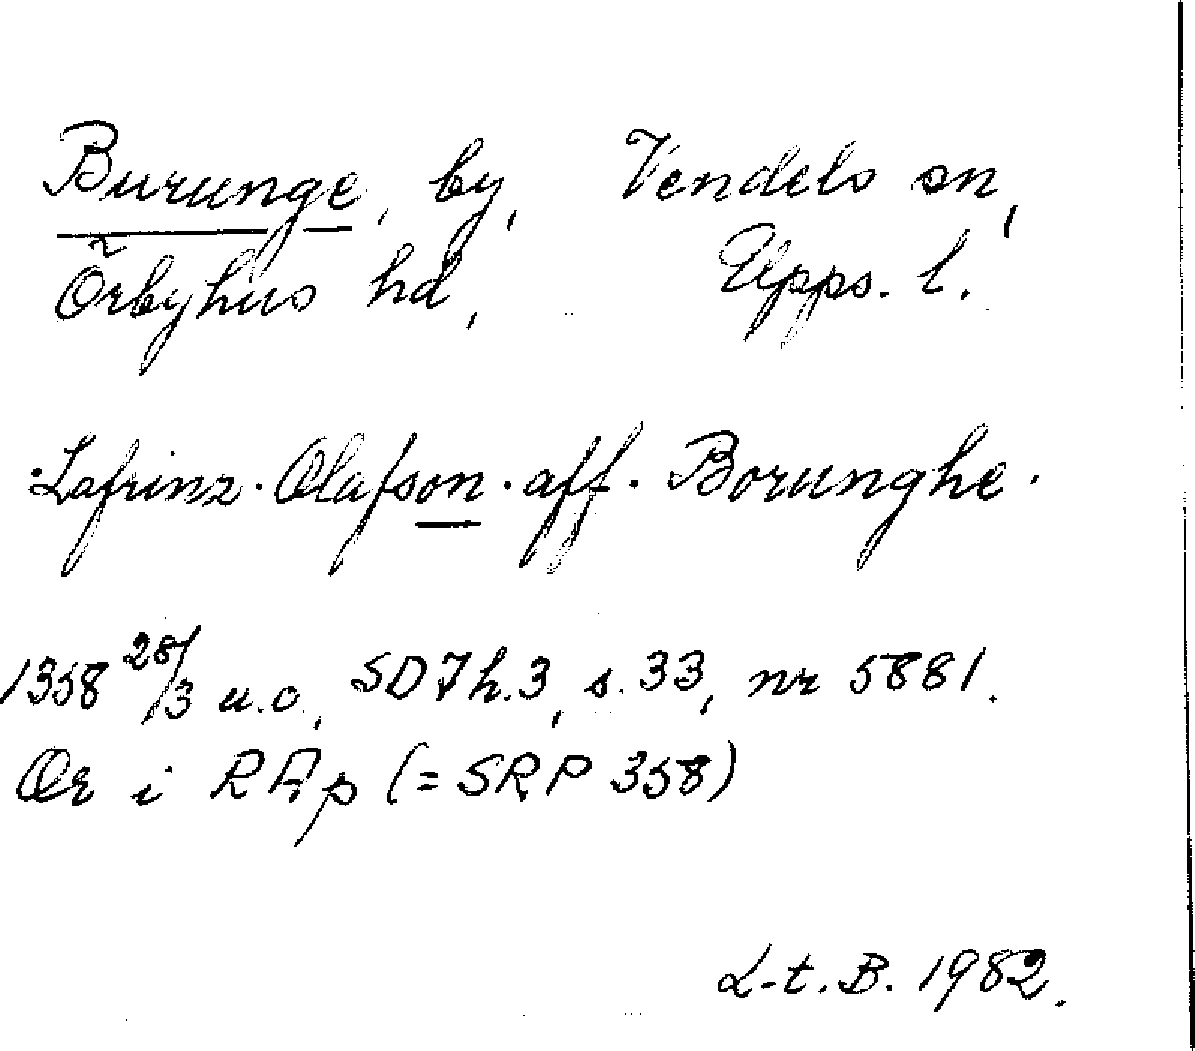 Burunge, by, Vendels sn,
Örbyhus hd, Upps. l.
·Lafrinz· Olafson · aff · Borunghe ·
1358 28/3 u.o., SD 7 h.3, s. 33, nr 5881.
Or i RAp (= SRP 358)
L-t. B. 1982.